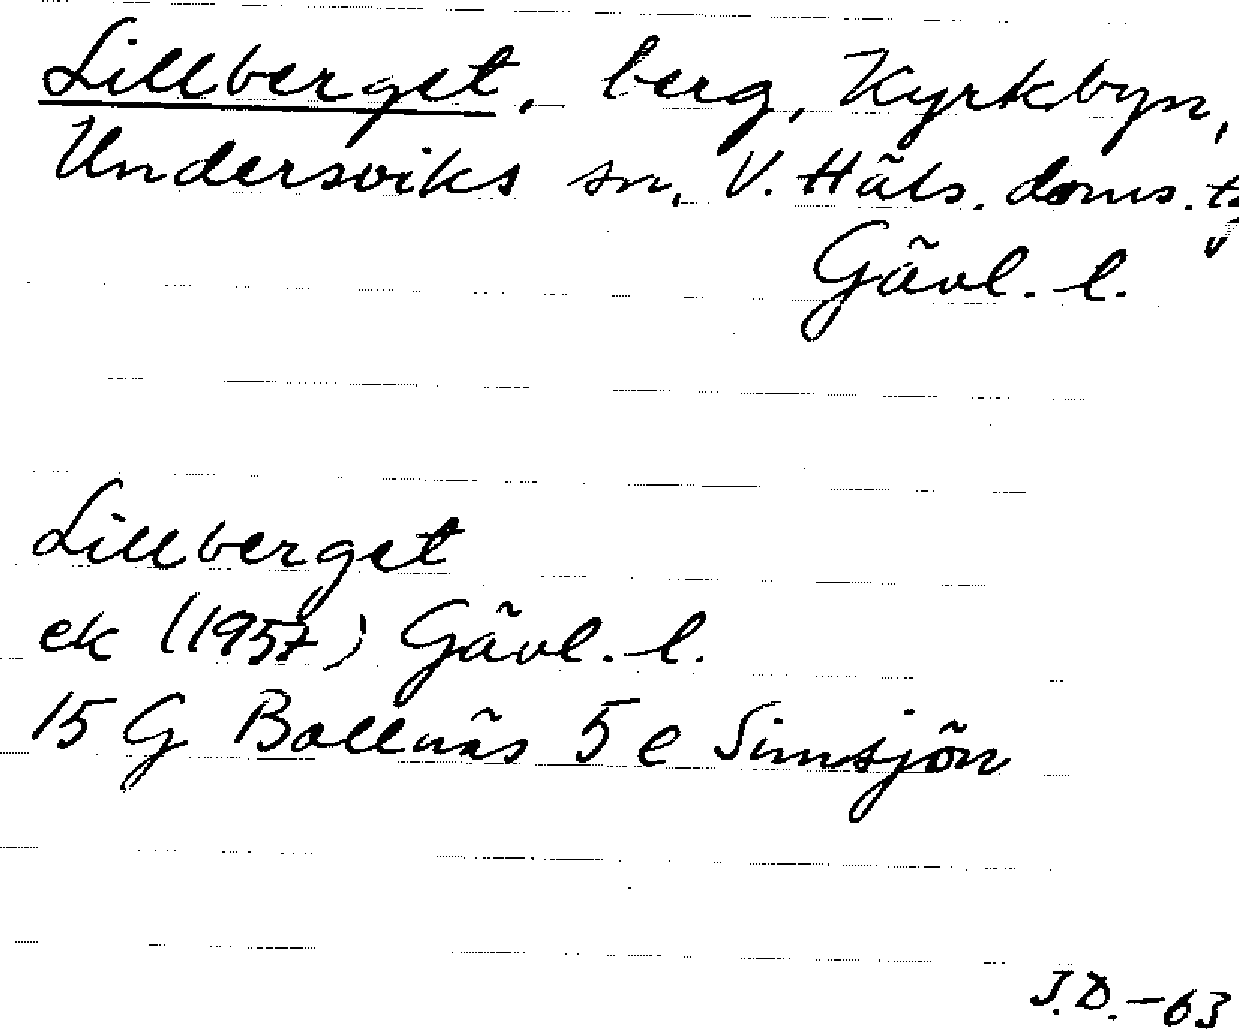 Lillberget, berg, Kyrkbyn,
Undersviks sn, V. Häls. doms.
Gävl. l.
Lillberget
ek (1957) Gävl. l.
15 G Bollnäs 5 e Simsjön
J.D. - 63